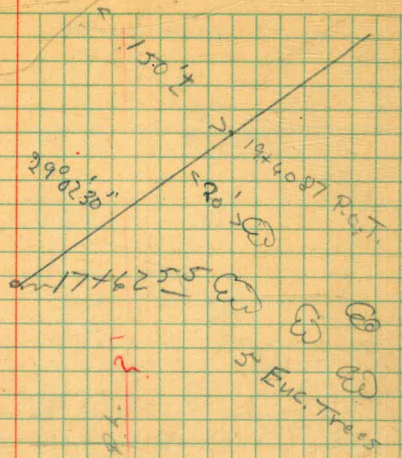 150'±
29° 02' 30"
19+40 87 P.O.T.
20'
17+62 55
5 Euc. Trees